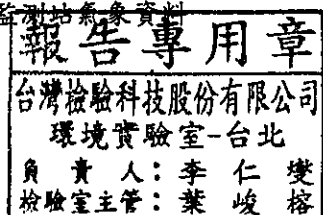 監測站氣象資料
報告專用章
台灣檢驗科技股份有限公司
環境實驗室-台北
負責人：李仁燮
檢驗室主管：葉峻榕